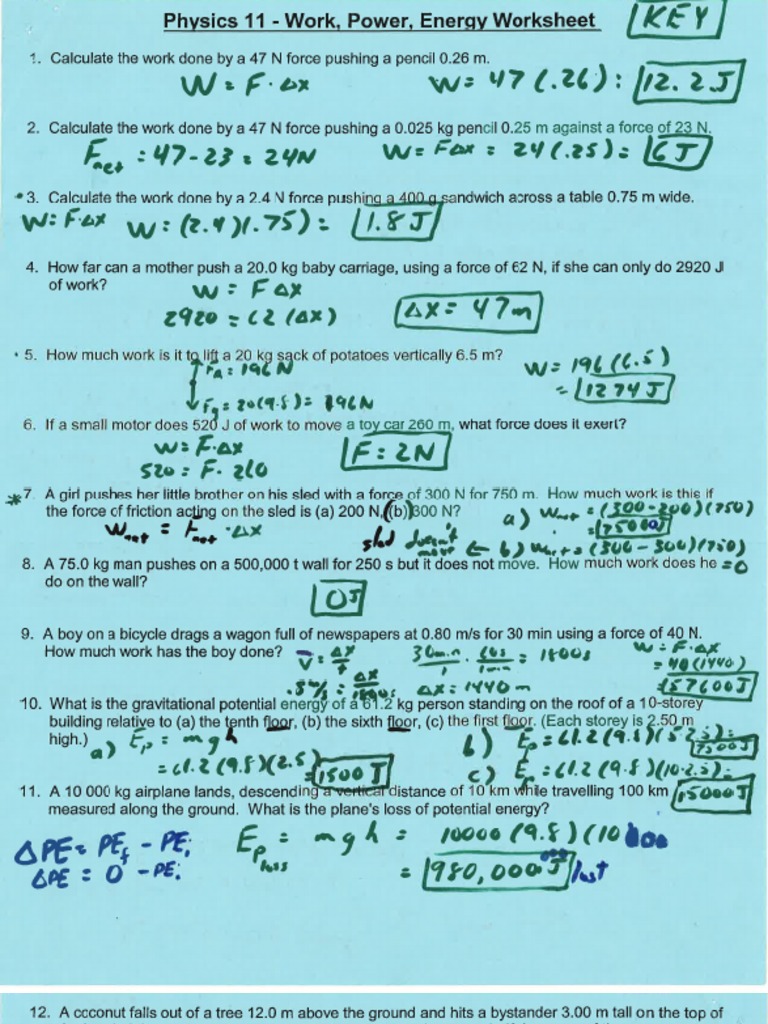 Physics 11 - Work, Power, Energy Worksheet
KEY
1. Calculate the work done by a 47 N force pushing a pencil 0.26 m.
W = F · Δx W = 47 (.26) : 12.2J
2. Calculate the work done by a 47 N force pushing a 0.025 kg pencil 0.25 m against a force of 23 N.
Fnet : 47-23 = 24N W = FΔx = 24(.25) = 6J
3. Calculate the work done by a 2.4 N force pushing a 400 g sandwich across a table 0.75 m wide.
W = F·Δx W = (2.4)(.75) = 1.8J
4. How far can a mother push a 20.0 kg baby carriage, using a force of 62 N, if she can only do 2920 J
of work?
W = F Δx
2920 = 62 (Δx) Δx = 47m
5. How much work is it to lift a 20 kg sack of potatoes vertically 6.5 m?
Fa = 196N W = 196(6.5)
Fg = 20(9.8) = 196N = 1274J
6. If a small motor does 520 J of work to move a toy car 260 m, what force does it exert?
W = F·Δx F = 2N
520 = F· 260
*7. A girl pushes her little brother on his sled with a force of 300 N for 750 m. How much work is this if
the force of friction acting on the sled is (a) 200 N, (b) 300 N?
a) Wnet = (300-200)(750)
= 75000J
Wnet = Fnet · Δx sled doesn't move ← b) Wnet = (300-300)(750)
= 0
8. A 75.0 kg man pushes on a 500,000 t wall for 250 s but it does not move. How much work does he
do on the wall?
0J
9. A boy on a bicycle drags a wagon full of newspapers at 0.80 m/s for 30 min using a force of 40 N.
How much work has the boy done?
v = Δx/t 30min/1 · 60s/1min = 1800s W = F·Δx
= 40(1440)
Δx/1800s Δx = 1440 m = 57600J
10. What is the gravitational potential energy of a 61.2 kg person standing on the roof of a 10-storey
building relative to (a) the tenth floor, (b) the sixth floor, (c) the first floor. (Each storey is 2.50 m
high.)
a) Ep = mgh
= 61.2(9.8)(2.5)
= 1500J
b) Ep = 61.2(9.8)(5·2.5) =
7500J
c) Ep = 61.2(9.8)(10·2.5) =
15000J
11. A 10 000 kg airplane lands, descending a vertical distance of 10 km while travelling 100 km
measured along the ground. What is the plane's loss of potential energy?
ΔPE = PEf - PEi Ep loss = mgh = 10000(9.8)(10000
ΔPE = 0 - PEi = 980,000,000J lost
12. A coconut falls out of a tree 12.0 m above the ground and hits a bystander 3.00 m tall on the top of